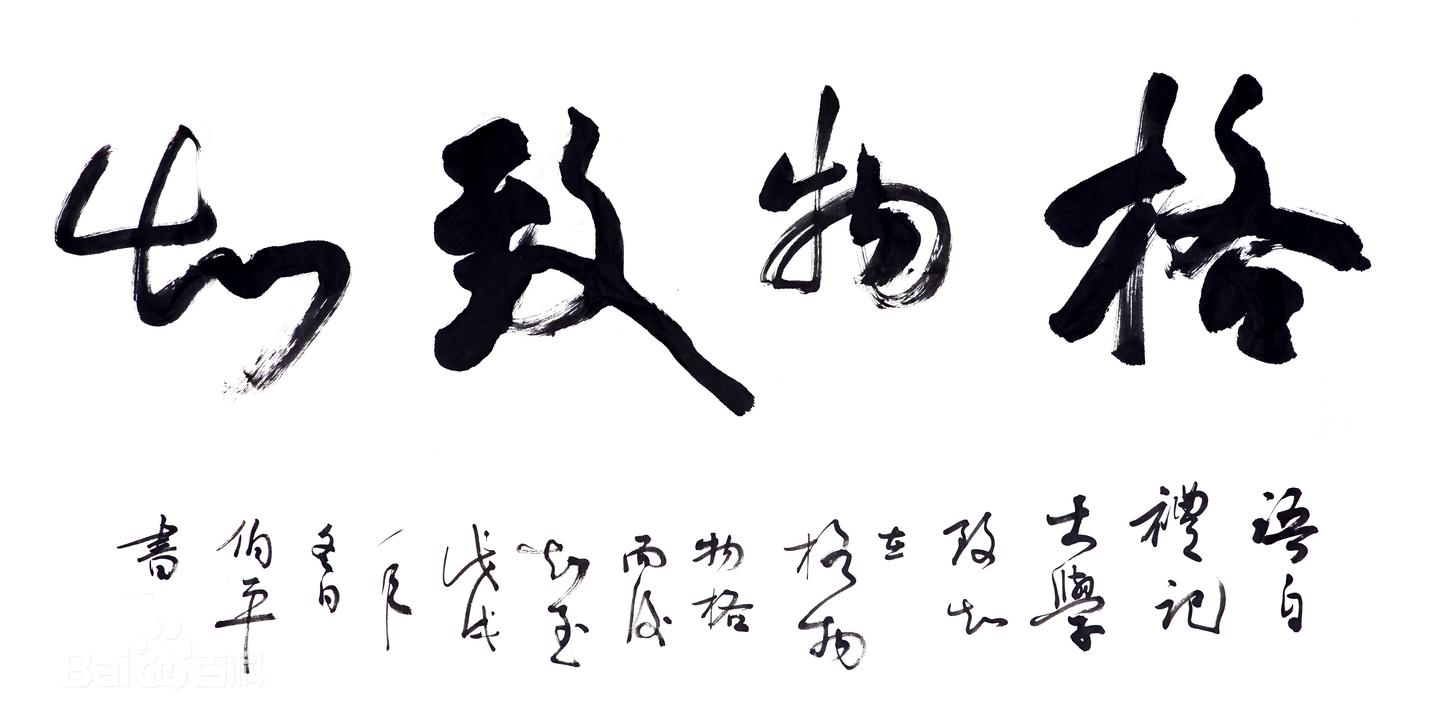 格物致知
語自
禮記
大學
致知
在
格物
物格
而後
知至
戊戌
年
冬日
伯平
書
Bai du 百科